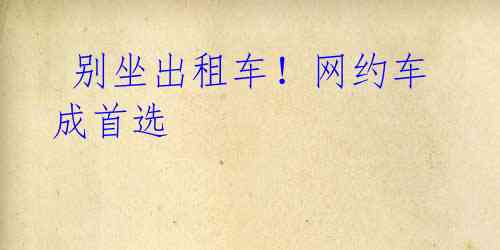 别坐出租车！网约车
成首选